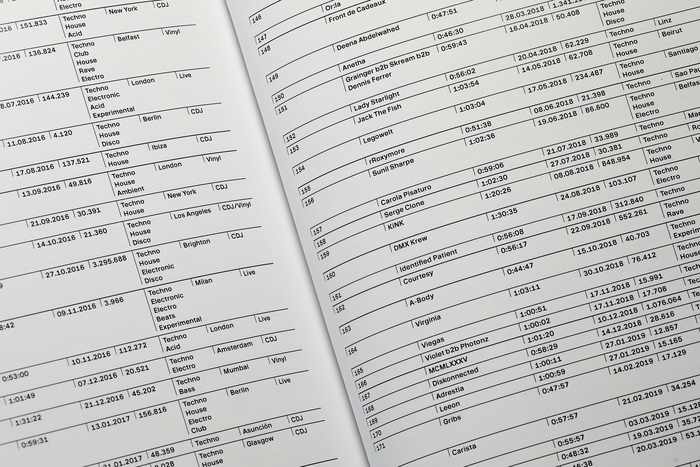 151.833 Electro New York CDJ
Techno
House
Acid
.2016 136.824 Techno Belfast Vinyl
Club
House
Rave
Electro
8.07.2016 144.239 Techno London Live
Electronic
Acid
Experimental
11.08.2016 4.120 Techno Berlin CDJ
House
Disco
17.08.2016 137.521 Techno Ibiza CDJ
House
13.09.2016 49.816 Techno London Vinyl
House
Ambient
21.09.2016 30.391 Techno New York CDJ
House
14.10.2016 21.360 Techno Los Angeles CDJ/Vinyl
House
Disco
27.10.2016 3.295.688 Techno Brighton CDJ
House
Electronic
Disco
8:42 09.11.2016 3.966 Techno Milan Live
Electronic
Electro
Beats
Experimental
0:53:00 10.11.2016 112.272 Techno London Live
Acid
1:01:49 07.12.2016 20.521 Techno Amsterdam CDJ
Electro
1:31:22 21.12.2016 45.202 Techno Mumbai Vinyl
Bass
0:59:31 13.01.2017 156.816 Techno Berlin Live
House
Electro
Club
21.01.2017 48.359 Techno Asunción CDJ
Techno Glasgow CDJ
House
146 Or:la
147 Front de Cadeaux
148 Deena Abdelwahed 0:47:51
149 Anetha 0:46:30 28.03.2018
150 Grainger b2b Skream b2b 0:59:43 16.04.2018 50.408 Techno
Dennis Ferrer House
Disco
151
152 Lady Starlight 0:56:02 20.04.2018 62.229 Techno Linz
153 Jack The Fish 1:03:54 14.05.2018 62.708 Techno Beirut
House
154 Legowelt 1:03:04 17.05.2018 234.487 Techno Santiago
House
155 rRoxymore 0:51:38 08.06.2018 21.398 Techno Sao Pau
156 Sunil Sharpe 1:02:36 19.06.2018 66.600 Techno Belfas
House
Electro
157 Carola Pisaturo 0:59:06 21.07.2018 33.989 Techno
158 Serge Clone 1:02:30 27.07.2018 30.381 Techno
159 KiNK 1:20:26 08.08.2018 848.954 Techno
House
160 DMX Krew 1:30:35 24.08.2018 103.107 Techno
House
Electro
161 Identified Patient 0:56:08 17.09.2018 312.840 Techno
162 Courtesy 0:56:17 22.09.2018 552.261 Techno
Rave
163 A-Body 0:44:47 15.10.2018 40.703 Techno
Experim
164 Virginia 1:03:11 30.10.2018 76.412 Techno
House
Electro
165 Viegas 1:00:51 17.11.2018 15.991 Techno
166 Violet b2b Photonz 1:00:02 17.11.2018 17.708 Techno
167 MCMLXXXV 1:01:20 10.12.2018 1.076.064 Techno
168 Diskonnected 0:58:29 14.12.2018 28.616 Techno
169 Adrestia 1:00:11 27.01.2019 12.857 Techno
170 Leeon 1:00:59 27.01.2019 15.165
171 Gribs 0:47:57 14.02.2019 17.129
Carista 0:57:57 21.02.2019 34.254
0:55:57 03.03.2019
0:46:32 19.03.2019
20.03.2019